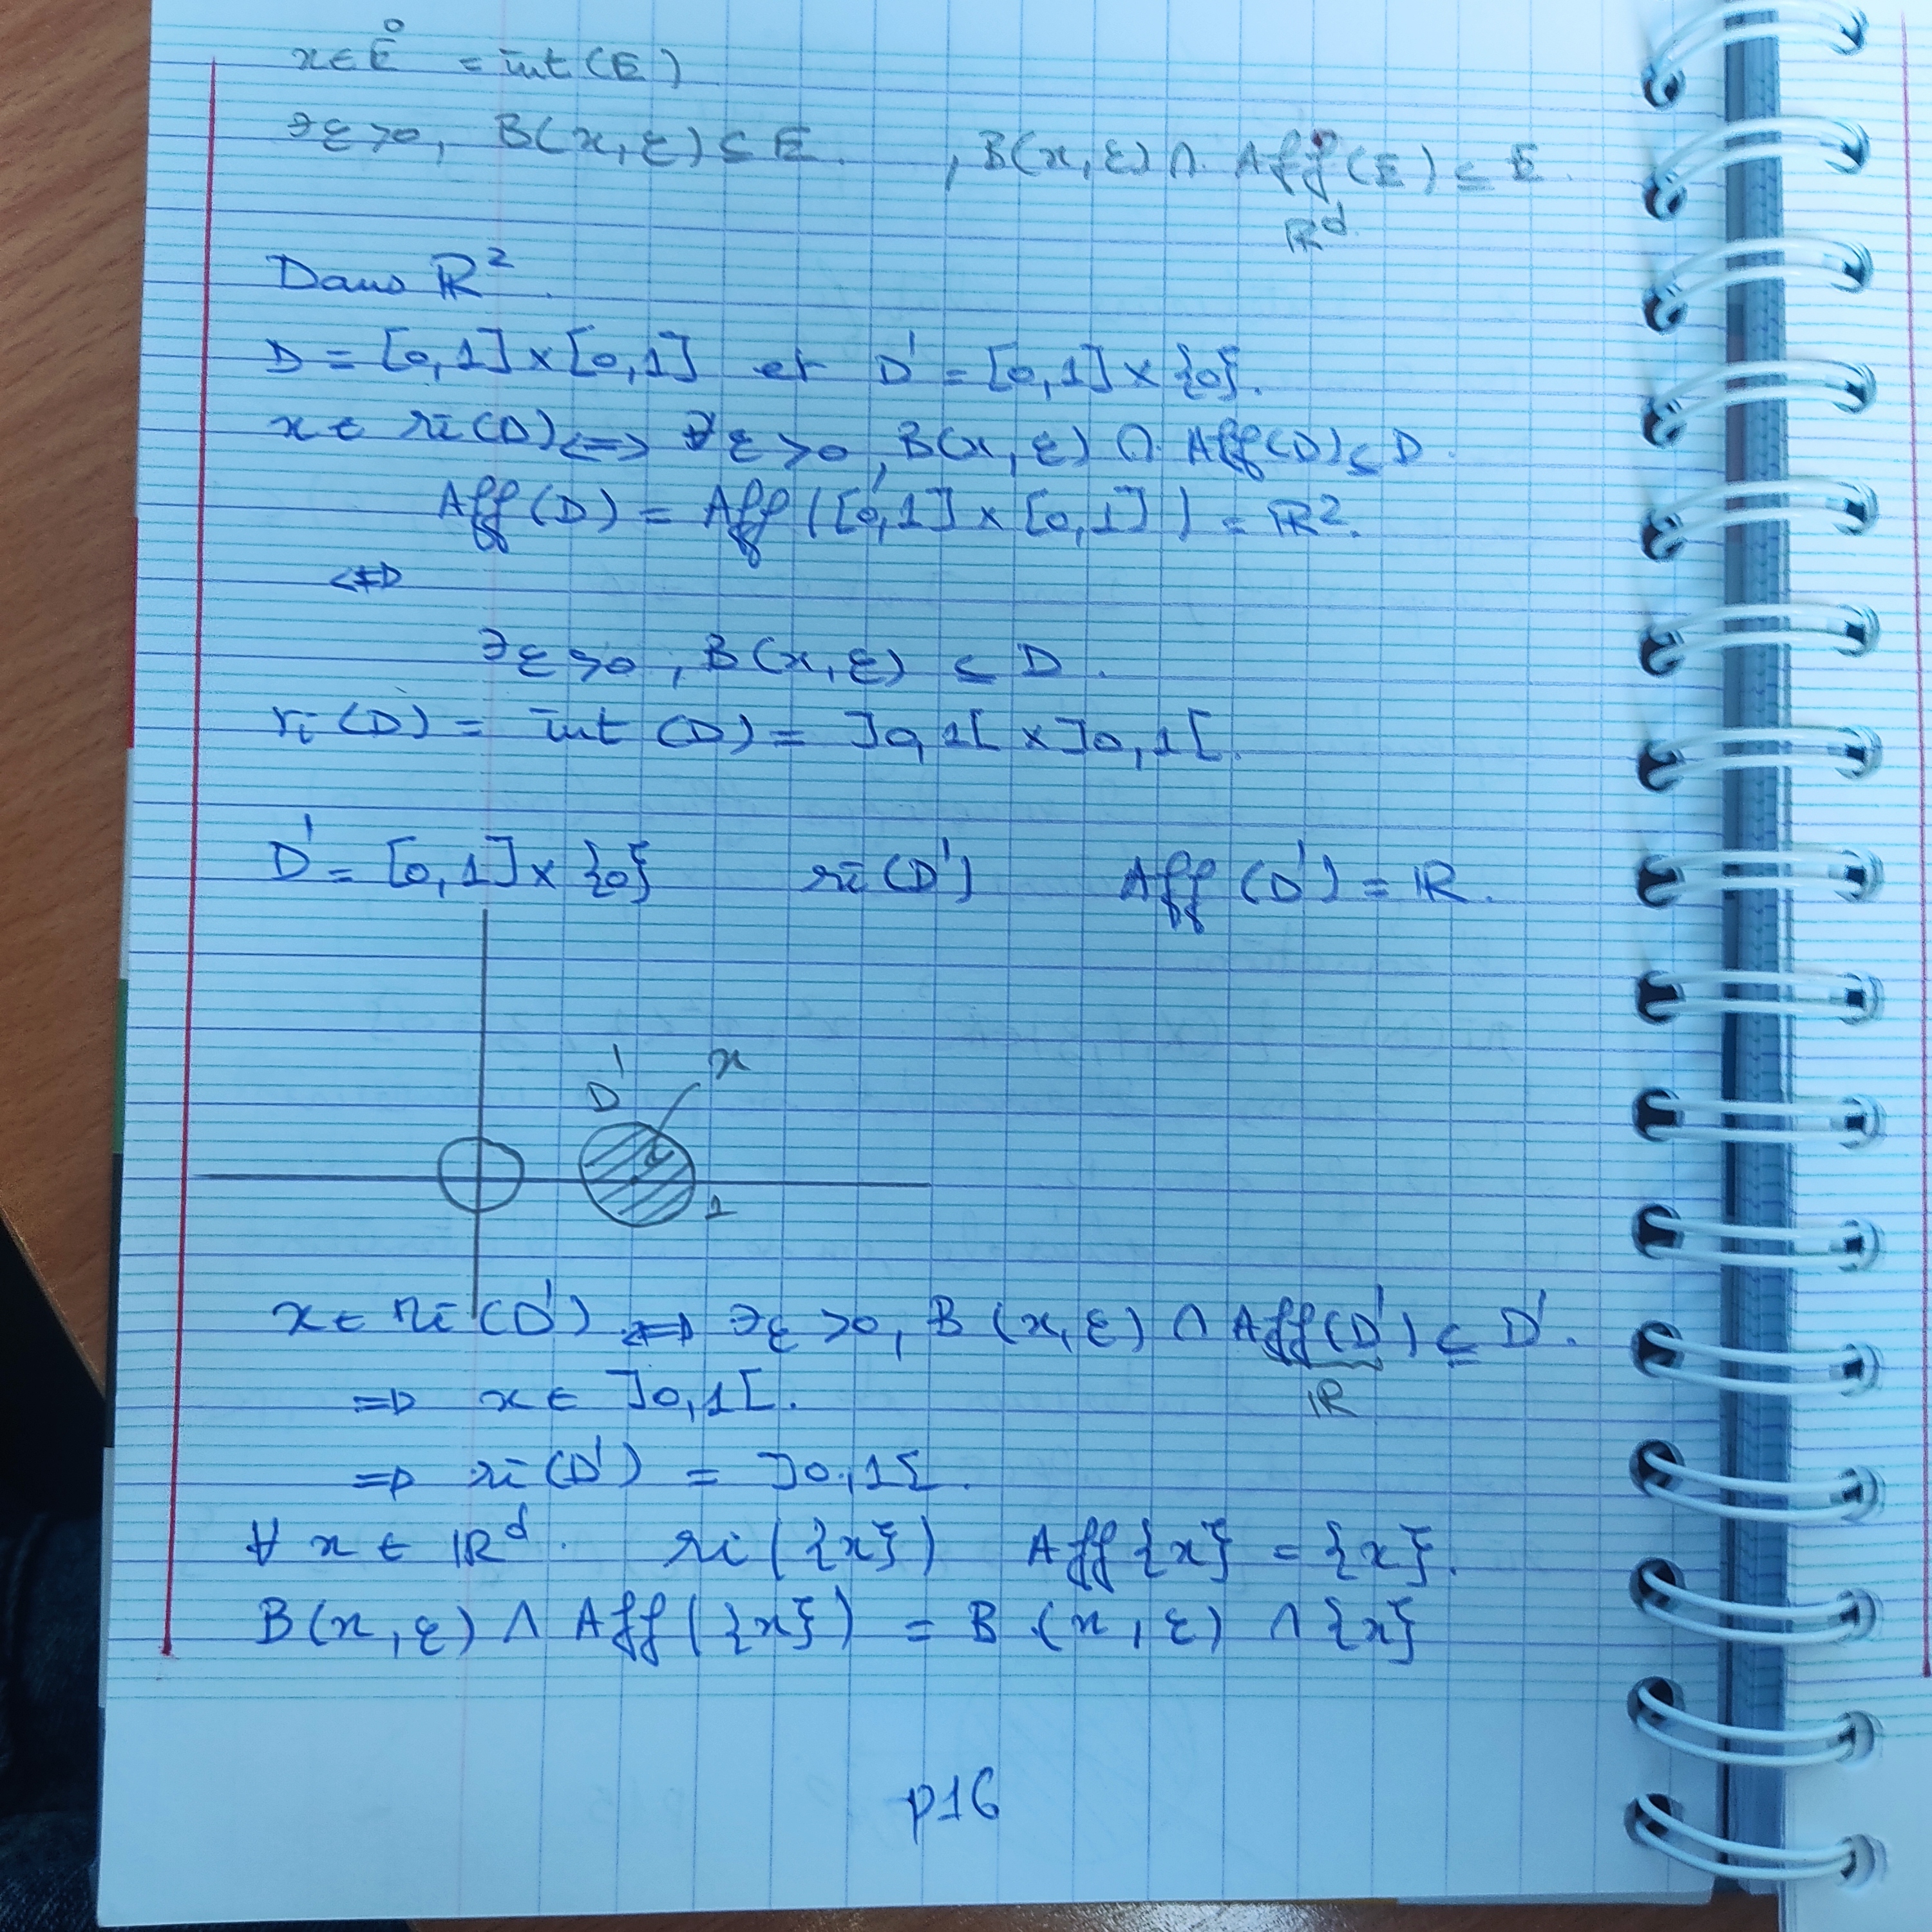 x ∈ E̊ = int(E)
∃ε>0, B(x,ε) ⊆ E. , B(x,ε) ∩ Aff(E) ⊆ E.
ℝᵈ
Dans ℝ².
D = [0,1]×[0,1] et D' = [0,1]×{0}.
x ∈ ri(D) <=> ∃ε>0, B(x,ε) ∩ Aff(D) ⊆ D.
Aff(D) = Aff([0,1]×[0,1]) = ℝ².
<=>
∃ε>0, B(x,ε) ⊆ D.
ri(D) = int(D) = ]0,1[×]0,1[.
D' = [0,1]×{0} ri(D') Aff(D') = ℝ.
D' x
1
x ∈ ri(D') <=> ∃ε>0, B(x,ε) ∩ Aff(D') ⊆ D'.
ℝ
=> x ∈ ]0,1[.
=> ri(D') = ]0,1[.
∀ x ∈ ℝᵈ. ri({x}) Aff{x} = {x}.
B(x,ε) ∩ Aff({x}) = B(x,ε) ∩ {x}
p16